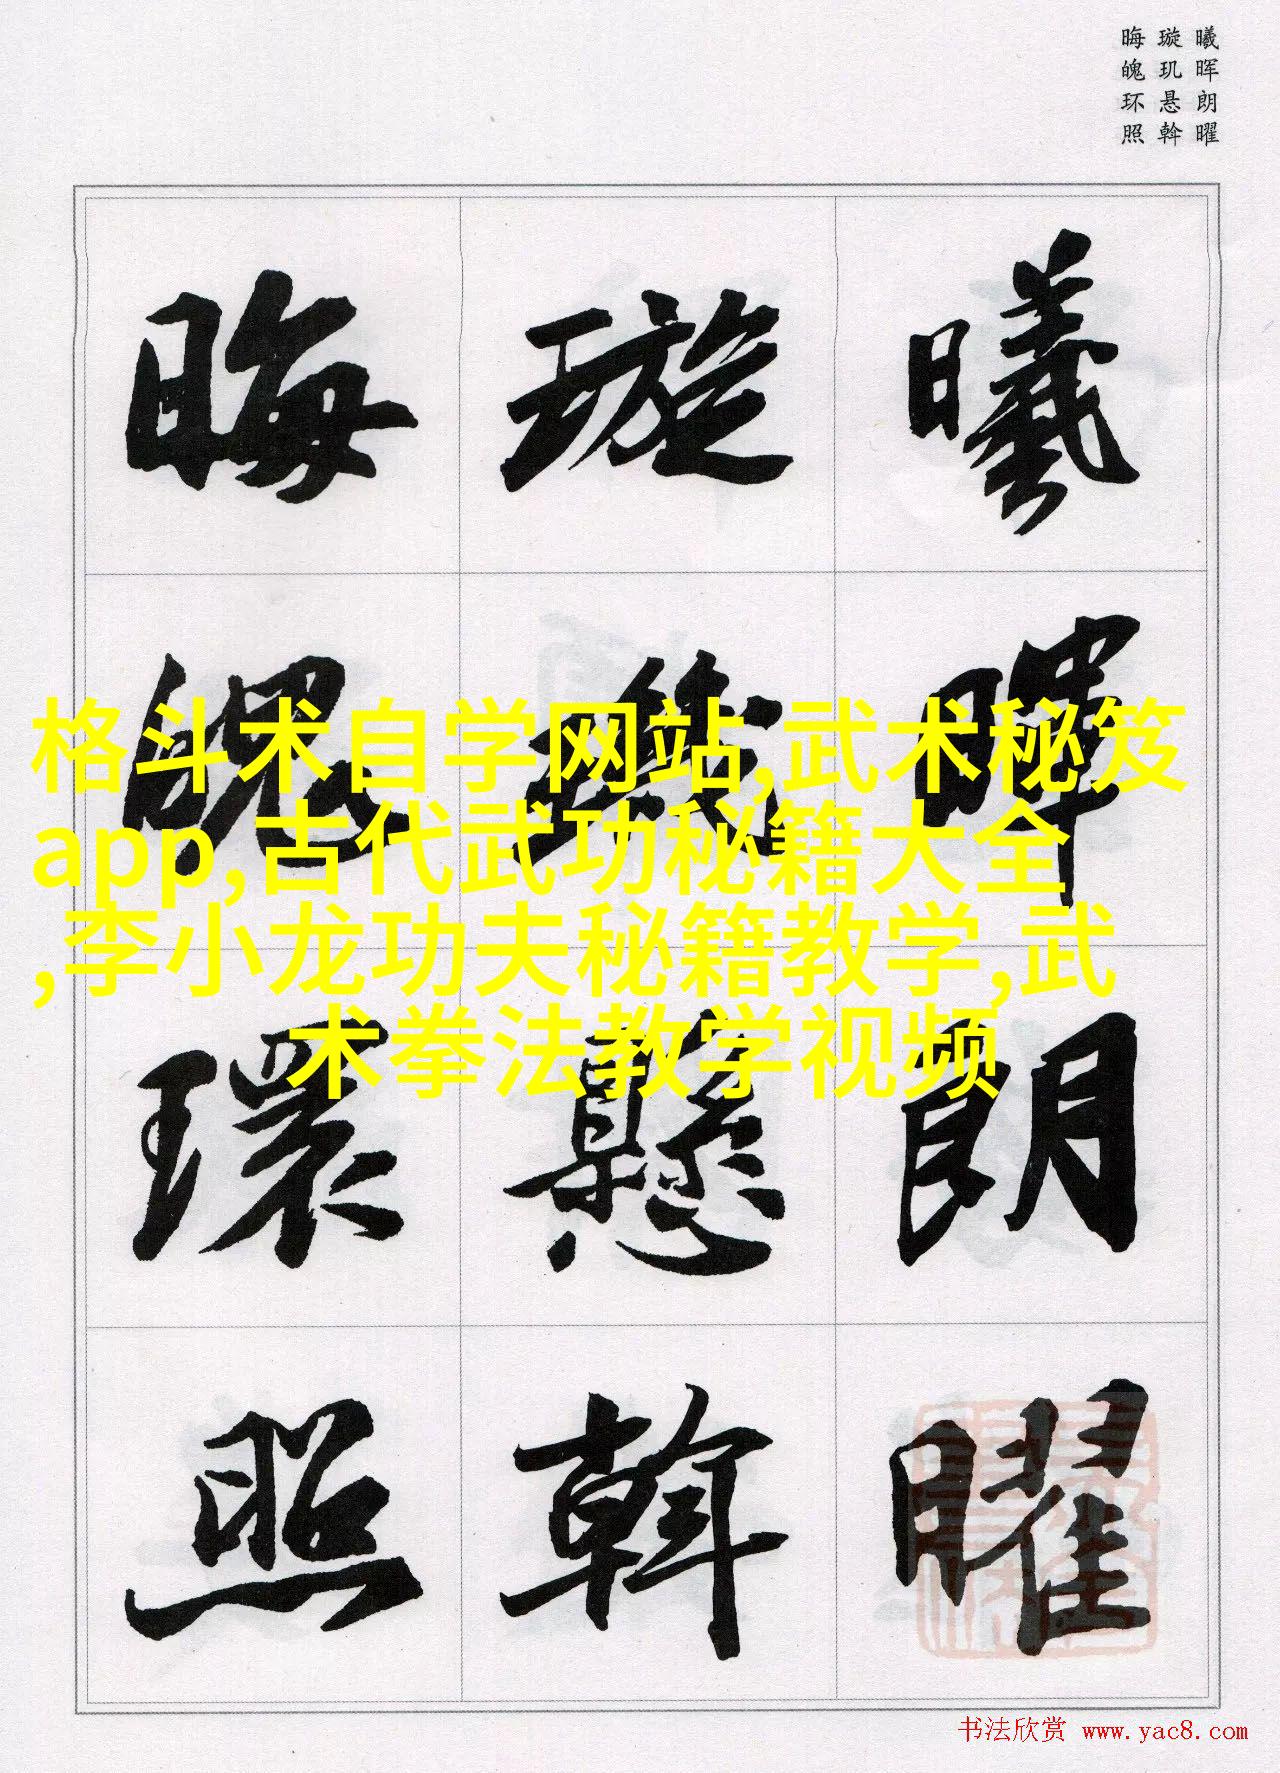 曦晖朗曜
璇玑悬斡
晦魄环照
曦暉朗曜
璇璣懸斡
晦魄環照
格斗术自学网站,武术秘笈
app,古代武功秘籍大全
,李小龙功夫秘籍教学,武
术拳法教学视频
书法欣赏 www.yac8.com